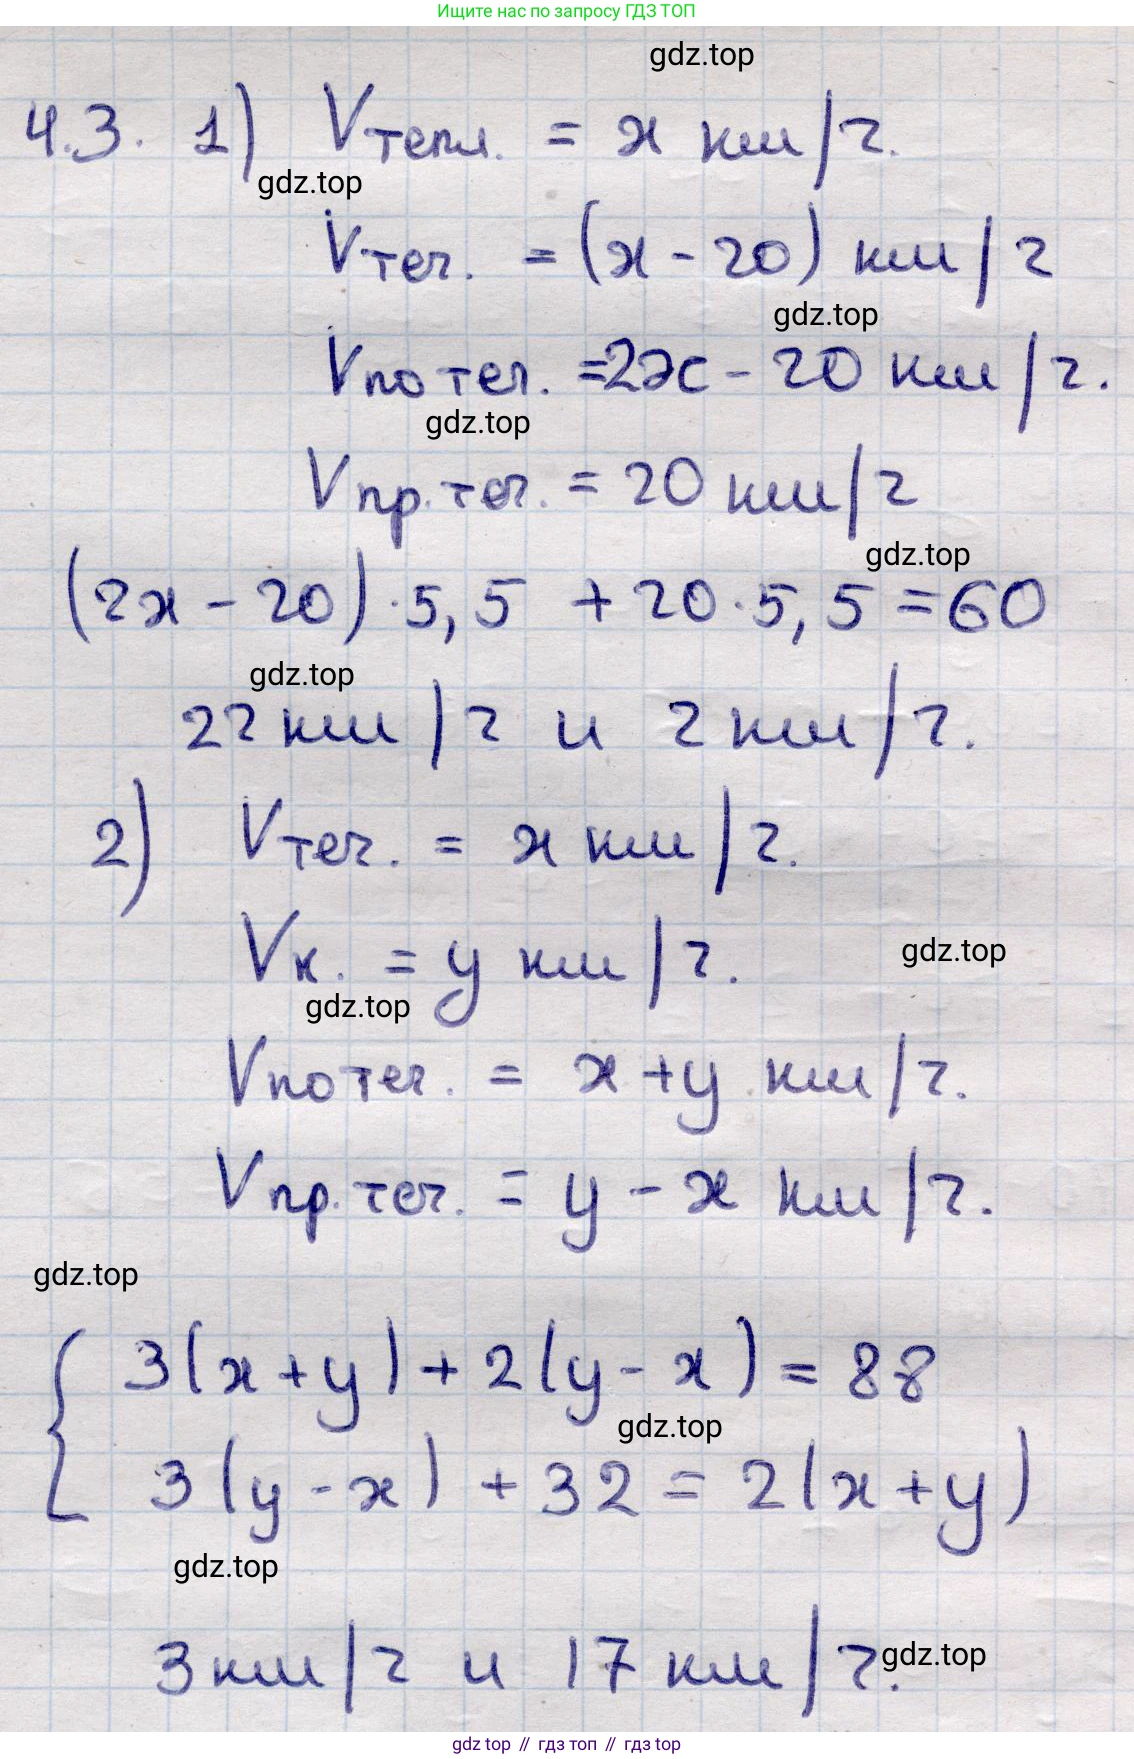 Ищите нас по запросу ГДЗ ТОП
gdz.top
4.3. 1) Vтепл. = x км/ч.
gdz.top
Vтеч. = (x - 20) км/ч
gdz.top
Vпо теч. = 2x - 20 км/ч.
gdz.top
Vпр. теч. = 20 км/ч
gdz.top
(2x - 20) · 5,5 + 20 · 5,5 = 60
gdz.top
22 км/ч и 2 км/ч.
2) Vтеч. = x км/ч.
Vк. = y км/ч.
gdz.top
gdz.top
Vпо теч. = x + y км/ч.
Vпр. теч. = y - x км/ч.
gdz.top
{ 3(x + y) + 2(y - x) = 88
gdz.top
3(y - x) + 32 = 2(x + y)
gdz.top
3 км/ч и 17 км/ч.
gdz.top
gdz top // гдз топ // гдз top